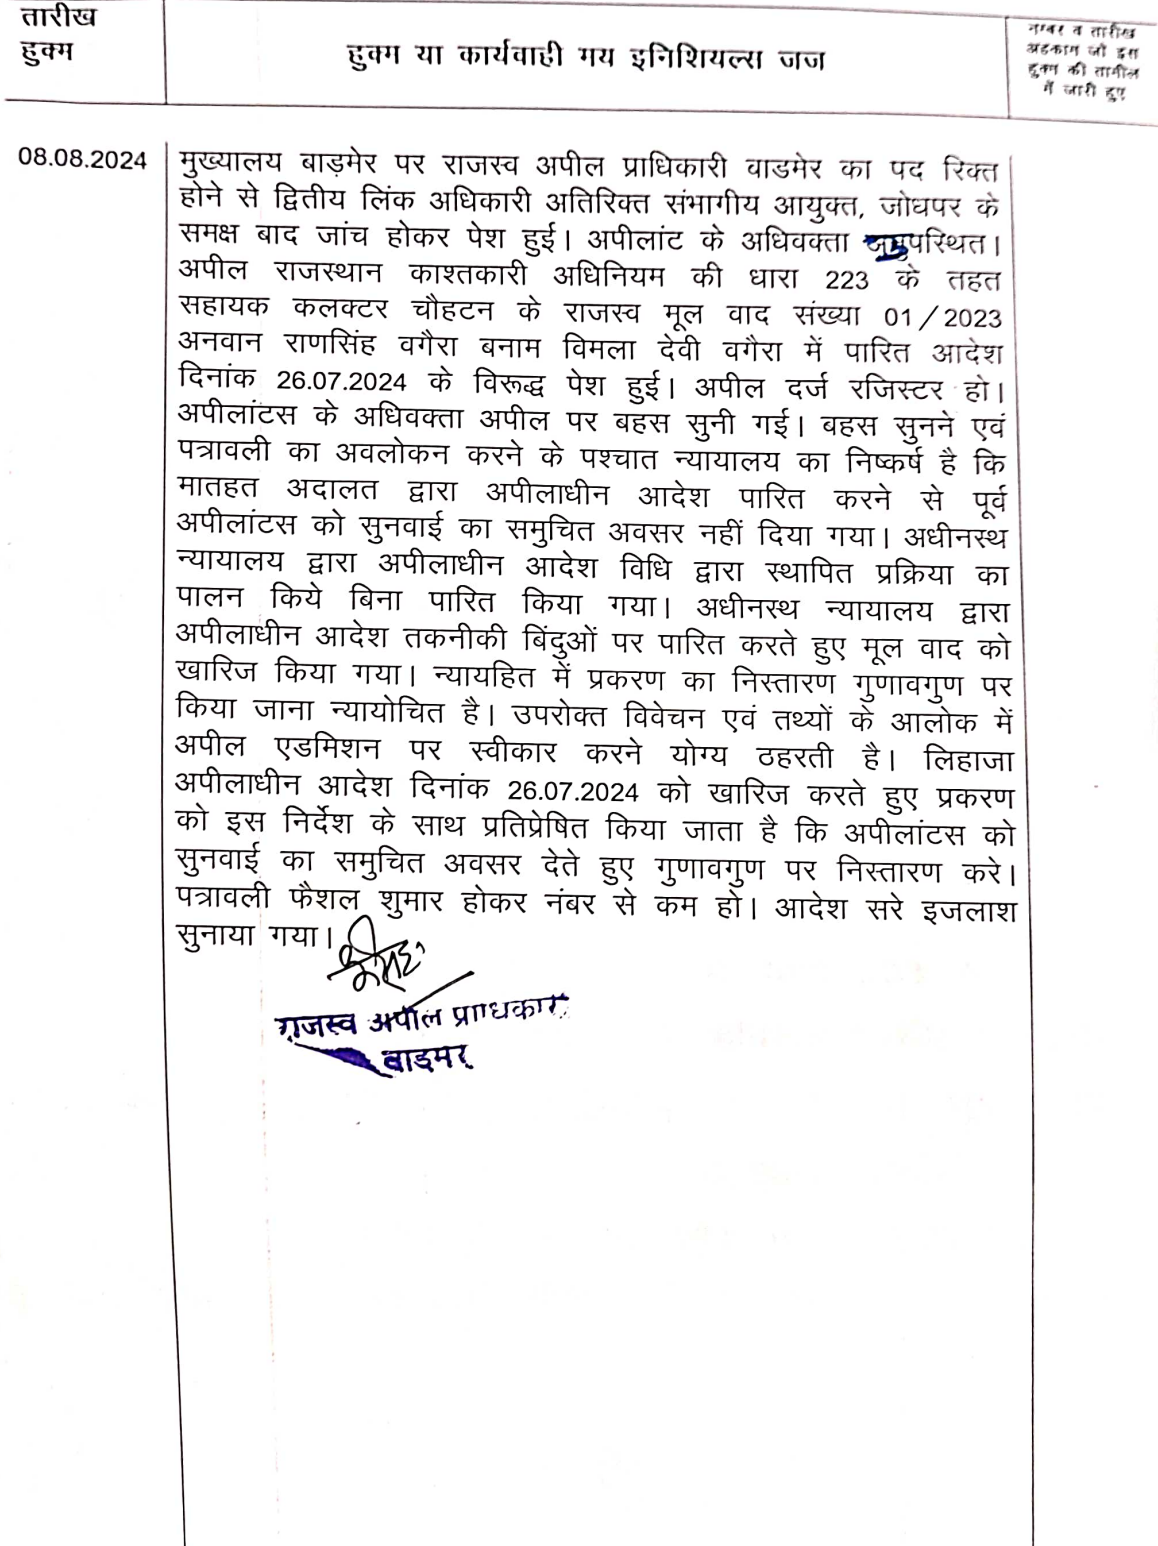 तारीख
हुक्म
हुक्म या कार्यवाही मय इनिशियल्स जज
नम्बर व तारीख
अहकाम जो इस
हुक्म की तामील
में जारी हुए
08.08.2024
मुख्यालय बाड़मेर पर राजस्व अपील प्राधिकारी वाडमेर का पद रिक्त
होने से द्वितीय लिंक अधिकारी अतिरिक्त संभागीय आयुक्त, जोधपर के
समक्ष बाद जांच होकर पेश हुई। अपीलांट के अधिवक्ता उपस्थित।
अपील राजस्थान काश्तकारी अधिनियम की धारा 223 के तहत
सहायक कलक्टर चौहटन के राजस्व मूल वाद संख्या 01/2023
अनवान राणसिंह वगैरा बनाम विमला देवी वगैरा में पारित आदेश
दिनांक 26.07.2024 के विरूद्ध पेश हुई। अपील दर्ज रजिस्टर हो।
अपीलांटस के अधिवक्ता अपील पर बहस सुनी गई। बहस सुनने एवं
पत्रावली का अवलोकन करने के पश्चात न्यायालय का निष्कर्ष है कि
मातहत अदालत द्वारा अपीलाधीन आदेश पारित करने से पूर्व
अपीलांटस को सुनवाई का समुचित अवसर नहीं दिया गया। अधीनस्थ
न्यायालय द्वारा अपीलाधीन आदेश विधि द्वारा स्थापित प्रक्रिया का
पालन किये बिना पारित किया गया। अधीनस्थ न्यायालय द्वारा
अपीलाधीन आदेश तकनीकी बिंदुओं पर पारित करते हुए मूल वाद को
खारिज किया गया। न्यायहित में प्रकरण का निस्तारण गुणावगुण पर
किया जाना न्यायोचित है। उपरोक्त विवेचन एवं तथ्यों के आलोक में
अपील एडमिशन पर स्वीकार करने योग्य ठहरती है। लिहाजा
अपीलाधीन आदेश दिनांक 26.07.2024 को खारिज करते हुए प्रकरण
को इस निर्देश के साथ प्रतिप्रेषित किया जाता है कि अपीलांटस को
सुनवाई का समुचित अवसर देते हुए गुणावगुण पर निस्तारण करे।
पत्रावली फैशल शुमार होकर नंबर से कम हो। आदेश सरे इजलाश
सुनाया गया।
राजस्व अपील प्राधिकारी
बाड़मेर